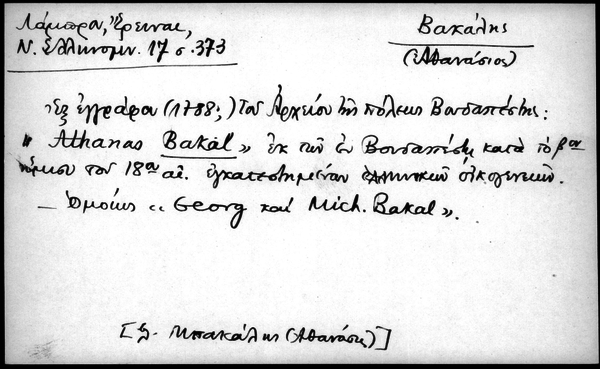 Λάμπρου, Ἔρευναι,
Ν. Ἑλληνομν. 17 σ. 373
Βακάλης
(Ἀθανάσιος)
Ἐξ ἐγγράφου (1788;) τοῦ Ἀρχείου τῆς πόλεως Βουδαπέστης:
"Athanas Bakal» ἐκ τῶν ἐν Βουδαπέστῃ κατὰ τὸ βον
ἥμισυ τοῦ 18ου αἰ. ἐγκατεστημένων ἑλληνικῶν οἰκογενειῶν.
— Ὁμοίως «Georg καὶ Mich. Bakal».
[Μπακάλης (Ἀθανάσης)]